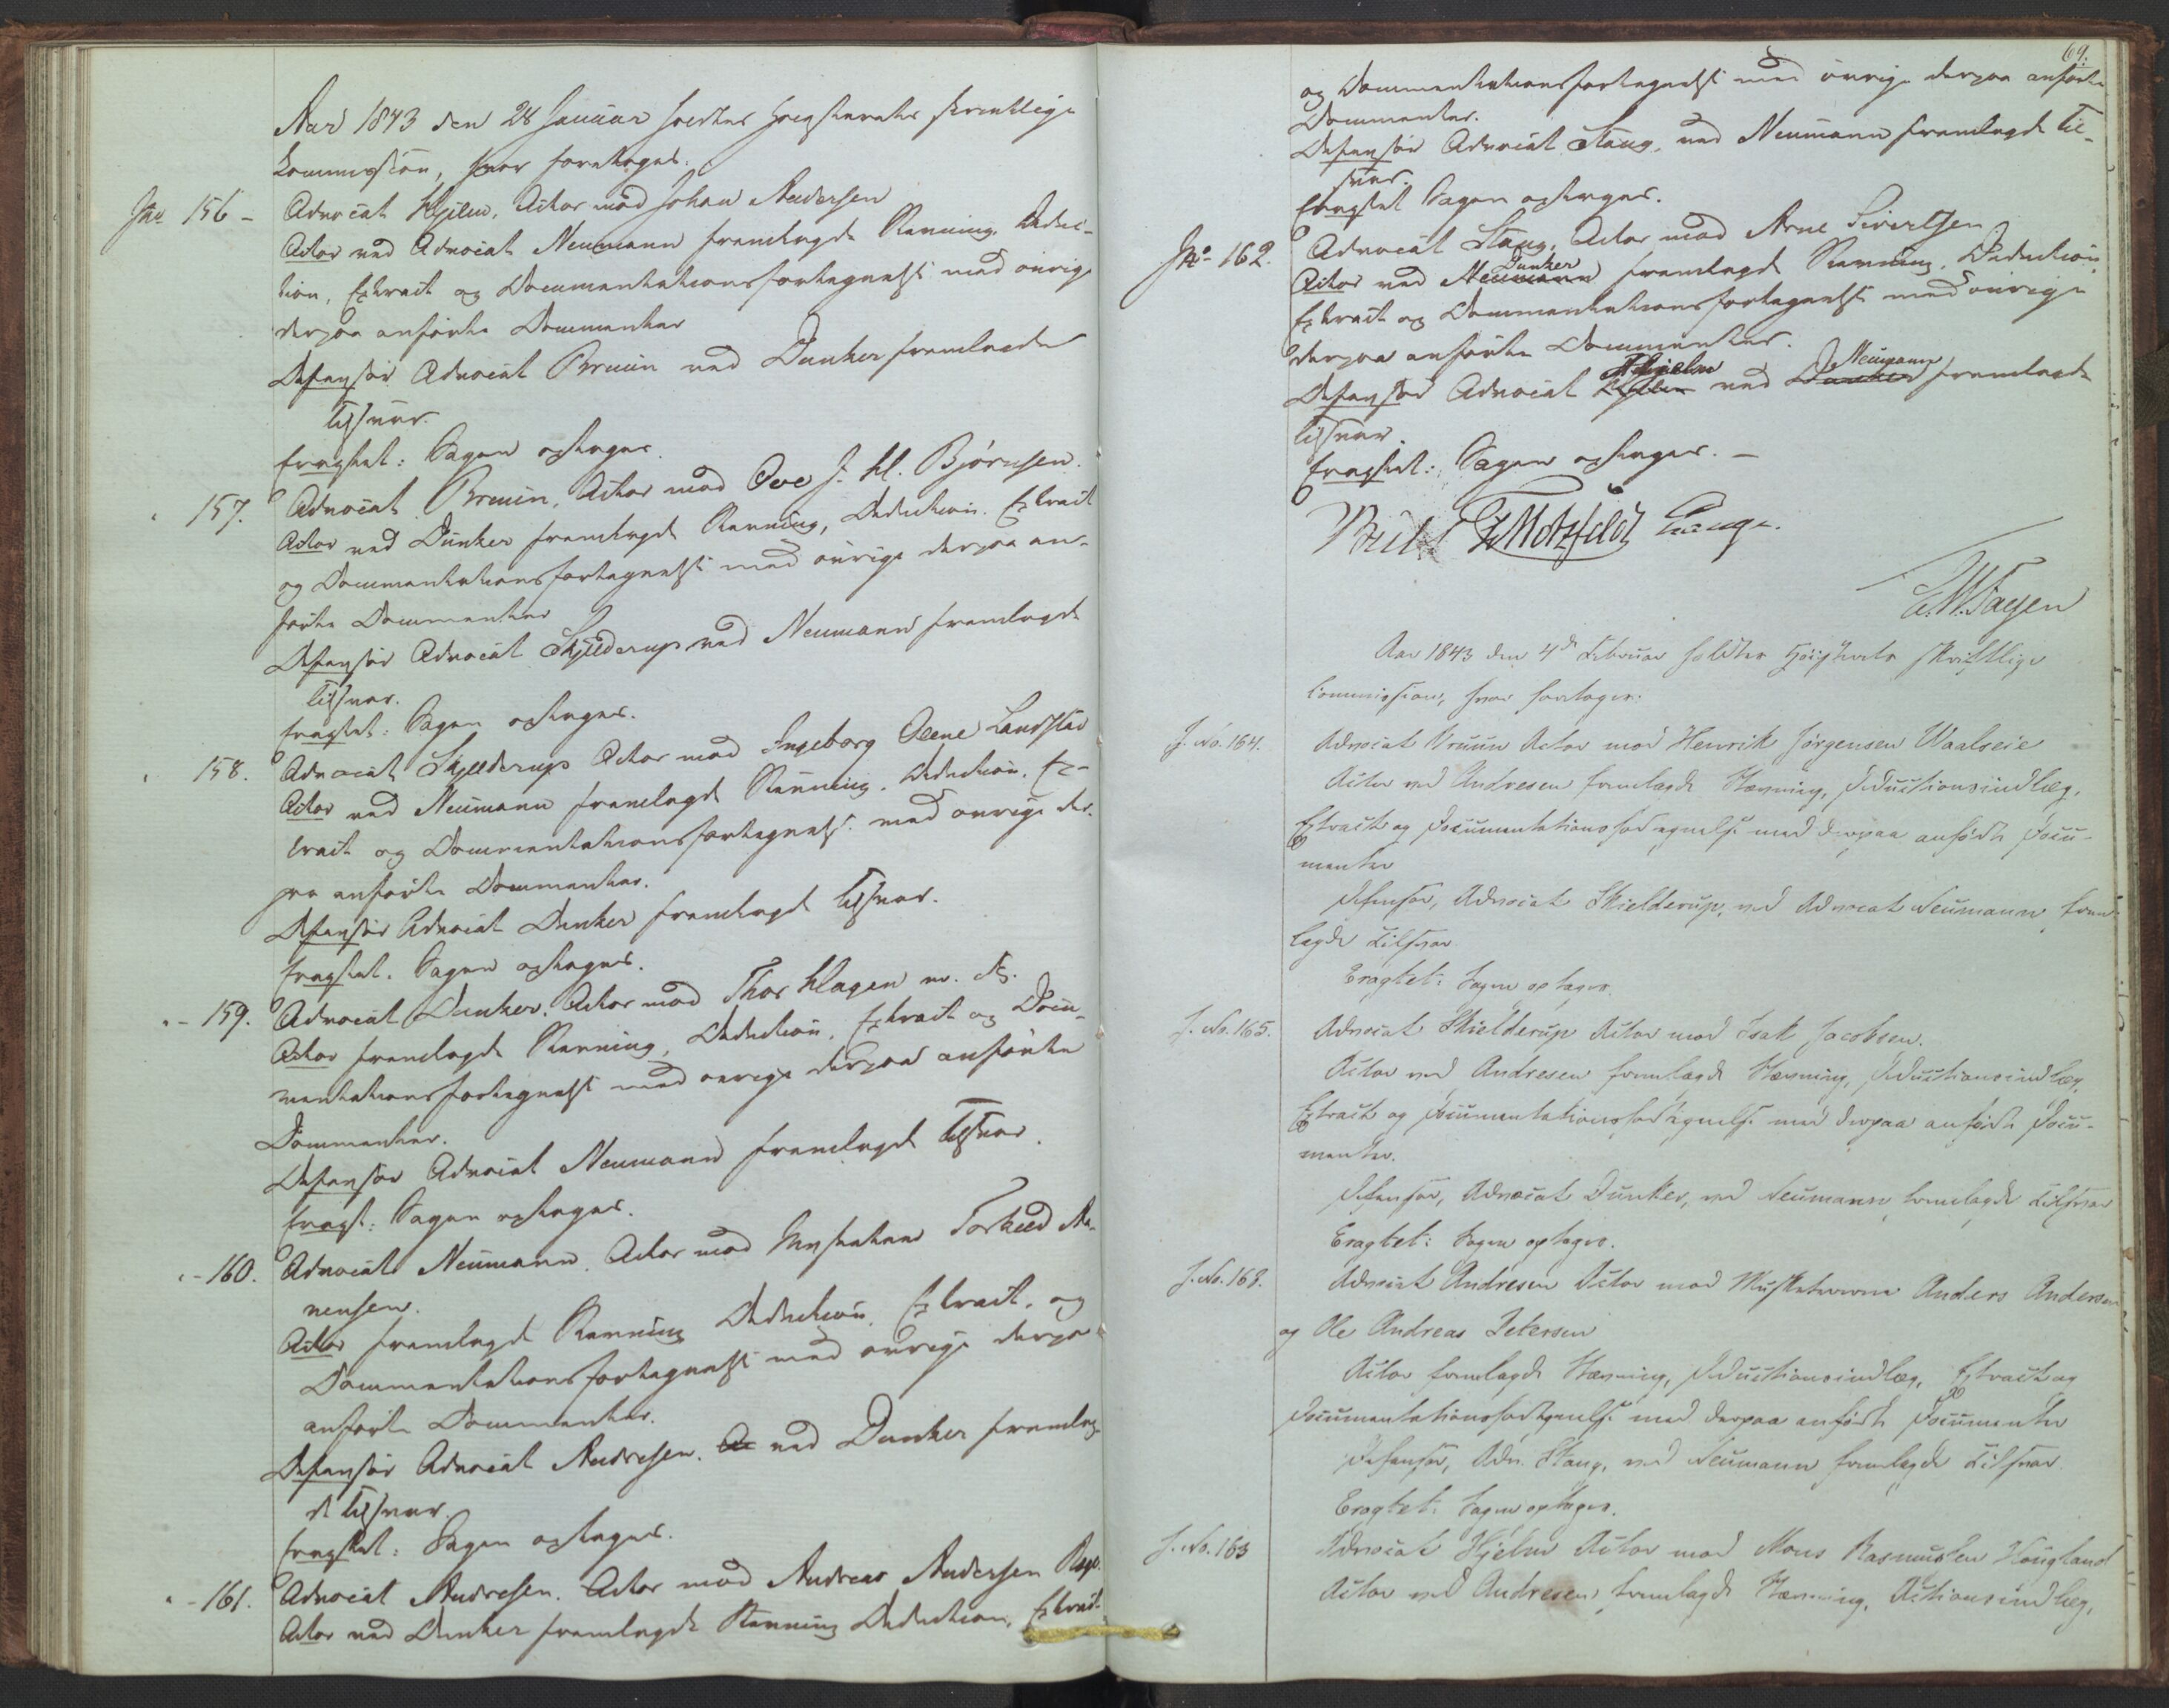 Aar 1843 den 28 Januar holdtes Høiesterets skriftlige
Commission, hvor foretoges:
JNo 156 - Advocat Hjelm, Actor mod Johan Andersen
Actor ved Advocat Neumann fremlagde Stævning, Deduc-
tion, Extract og Documentationsfortegnelse med øvrige
derpaa anførte Documenter
Defensor Advocat Bruun ved Dunker fremlagde
Tilsvar.
Eragtet: Sagen optages.
" 157. Advocat Bruun, Actor mod Ove J. H. Bjørnsen.
Actor ved Dunker fremlagde Stævning, Deduction, Extract
og Documentationsfortegnelse med øvrige derpaa an-
førte Documenter
Defensor Advocat Skjelderup ved Neumann fremlagde
Tilsvar.
Eragtet: Sagen optages.
" 158. Advocat Skjelderup Actor mod Ingeborg Oline Landstad
Actor ved Neumann fremlagde Stævning, Deduction, Ex-
tract og Documentationsfortegnelse med øvrige der-
paa anførte Documenter.
Defensor Advocat Dunker fremlagde Tilsvar.
Eragtet. Sagen optages.
" - 159. Advocat Dunker, Actor mod Thor Hagen m. fl.
Actor fremlagde Stævning, Deduction, Extract og Docu-
mentationsfortegnelse med øvrige derpaa anførte
Documenter.
Defensor Advocat Neumann fremlagde Tilsvar.
Eragt: Sagen optages.
" - 160. Advocat Neumann, Actor mod Musketeer Torkild
nensen.
Actor fremlagde Stævning Deduction, Extract, og
Documentationsfortegnelse med øvrige derpaa
anførte Documenter.
Defensor Advocat Andresen. ved Dunker fremlag-
de Tilsvar.
Eragtet: Sagen optages.
" - 161. Advocat Andresen. Actor mod Andreas Andersen
Actor ved Dunker fremlagde Stævning Deduction, Extract
69.
og Documentationsfortegnelse med øvrige derpaa anførte
Documenter.
Defensor Advocat Stang, ved Neumann fremlagde Til-
svar.
Eragtet Sagen optages.
JNo 162. Advocat Stang, Actor mod Arne Sivertsen
Actor ved Neumann Dunker fremlagde Stævning, Deduction,
Extract og Documentationsfortegnelse med øvrige
derpaa anførte Documenter.
Defensor Advocat Hjelm Hjelm ved Dunker Neumann fremlagde
Tilsvar.
Eragtet: Sagen optages. -
Motzfeldt Lange.
Fayen
Aar 1843 den 4de Februar holdtes Høiesterets skriftlige
Commission, hvor foretoges:
J. No. 164. Advocat Bruun Actor mod Henrik Jørgensen Waalseie
Actor ved Andresen fremlagde Stævning, Deductionsindlæg,
Extract og Documentationsfortegnelse med derpaa anførte Docu-
menter
Defensor, Advocat Skielderup, ved Advocat Neumann frem-
lagde Tilsvar
Eragtet: Sagen optages.
J. No. 165. Advocat Skielderup Actor mod Isak Jacobsen.
Actor ved Andresen fremlagde Stævning, Deductionsindlæg,
Extract og Documentationsfortegnelse med derpaa anførte Docu-
menter.
Defensor, Advocat Dunker, ved Neumann fremlagde Tilsvar
Eragtet: Sagen optages.
J. No. 168. Advocat Andresen Actor mod Musketererne Anders Andersen
og Ole Andreas Petersen
Actor fremlagde Stævning, Deductionsindlæg, Extract og
Documentationsfortegnelse med derpaa anførte Documenter
Defensor, Adv. Stang, ved Neumann fremlagde Tilsvar.
Eragtet: Sagen optages.
J. No. 163 Advocat Hjelm Actor mod Mons Rasmussen Hougland
Actor ved Andresen fremlagde Stævning, Actionsindlæg,